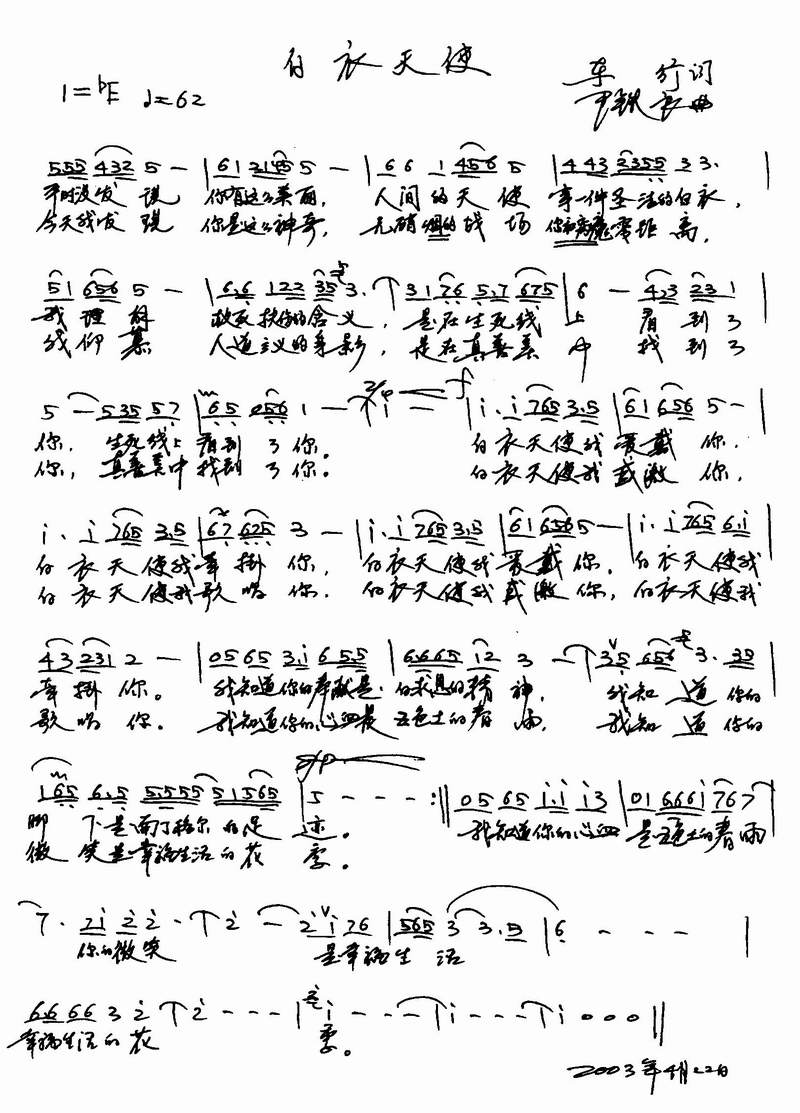 白衣天使
1=♭E ♩=62
车行词
555 432 5 — | 61 2145 5 — | 66 1 456 5 | 443 2355 33. |
平时没发现 你有这么美丽, 人间的天使 穿一件圣洁的白衣,
今天我发现 你是这么神奇, 无硝烟的战场 你和病魔零距离,
51 656 5 — | 6.6 122 35 3. | 31 76 5.7 675 | 6 — 4.3 231 |
我理解 救死扶伤的含义, 是在生死线上 看到了
我仰慕 人道主义的身影, 是在真善美中 找到了
5 — 535 57 | 65 056 1 — | i — | i. i 765 3.5 | 61 656 5 — |
你, 生死线上看到了你. 白衣天使我爱戴你.
你, 真善美中找到了你. 白衣天使我感激你,
i. i 765 3.5 | 67 625 3 — | i. i 765 3.5 | 61 656 5 — | i. i 765 6.i |
白衣天使我牵掛你, 白衣天使我爱戴你. 白衣天使我
白衣天使我歌唱你. 白衣天使我感激你, 白衣天使我
43 231 2 — | 05 65 3.i 6 5.5 | 6.665 i2 3 — | 35 656 3. 35 |
牵掛你。 我知道你的奉献是 白求恩的精神, 我知道你的
歌唱你. 我知道你的心血是 五色土的春雨, 我知道你的
165 6.5 5.555 51565 | 5 - - - :|| 05 65 i.i i3 | 01 666i 767 |
脚下是南丁格尔的足迹。 我知道你的心血 是五色土的春雨
微笑是幸福生活的花季。
7. 7i 2 2. | 2 — 2 i 76 | 565 3 3.5 | 6 - - - |
你的微笑 是幸福生活
6.6 66 3 2 | 2 - - - | i - - - | i - - - | i 0 0 0 ||
幸福生活的花季。
2003年4月22日